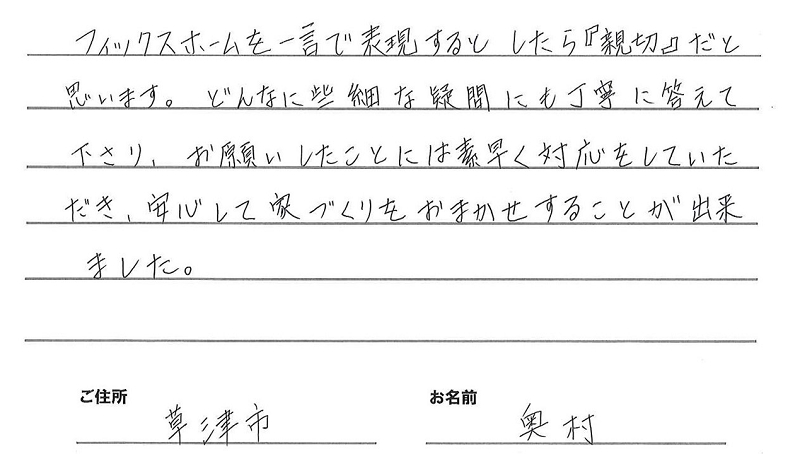 フィックスホームを一言で表現するとしたら『親切』だと
思います。どんなに些細な疑問にも丁寧に答えて
下さり、お願いしたことには素早く対応をしていた
だき、安心して家づくりをおまかせすることが出来
ました。
ご住所 草津市 お名前 奥村